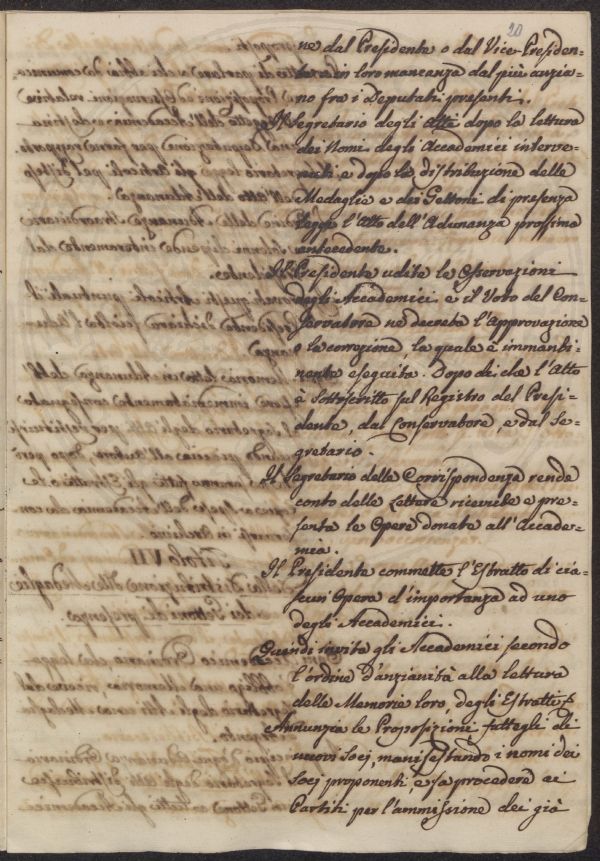 20
ne dal Presidente o dal Vice-Presiden=
te o in loro mancanza dal più anzia=
no fra i Deputati presenti.
Il Segretario degli Atti dopo la lettura
dei Nomi degli Accademici interve=
nuti e dopo la distribuzione delle
Medaglie e dei Gettoni di presenza
legge l'Atto dell'Adunanza prossima
antecedente.
Il Presidente udite le Osservazioni
degli Accademici e il Voto del Con=
servatore ne decreta l'Approvazione
o la correzione, la quale è immanti=
nente eseguita. Dopo di che l'Atto
è Sottoscritto sul Registro del Presi=
dente, dal Conservatore, e dal Se=
gretario.
Il Segretario della Corrispondenza rende
conto delle Lettere ricevute e pre=
senta le Opere donate all'Accade=
mia.
Il Presidente commette l'Estratto di cia=
scun'Opera d'importanza ad uno
degli Accademici.
Quindi invita gli Accademici secondo
l'ordine d'anzianità alla lettura
delle Memorie loro, degli Estratti
Annunzia le Proposizioni fattegli di
nuovi Socj, manifestando i nomi dei
Socj proponenti e fa procedere ai
Partiti per l'ammissione dei già